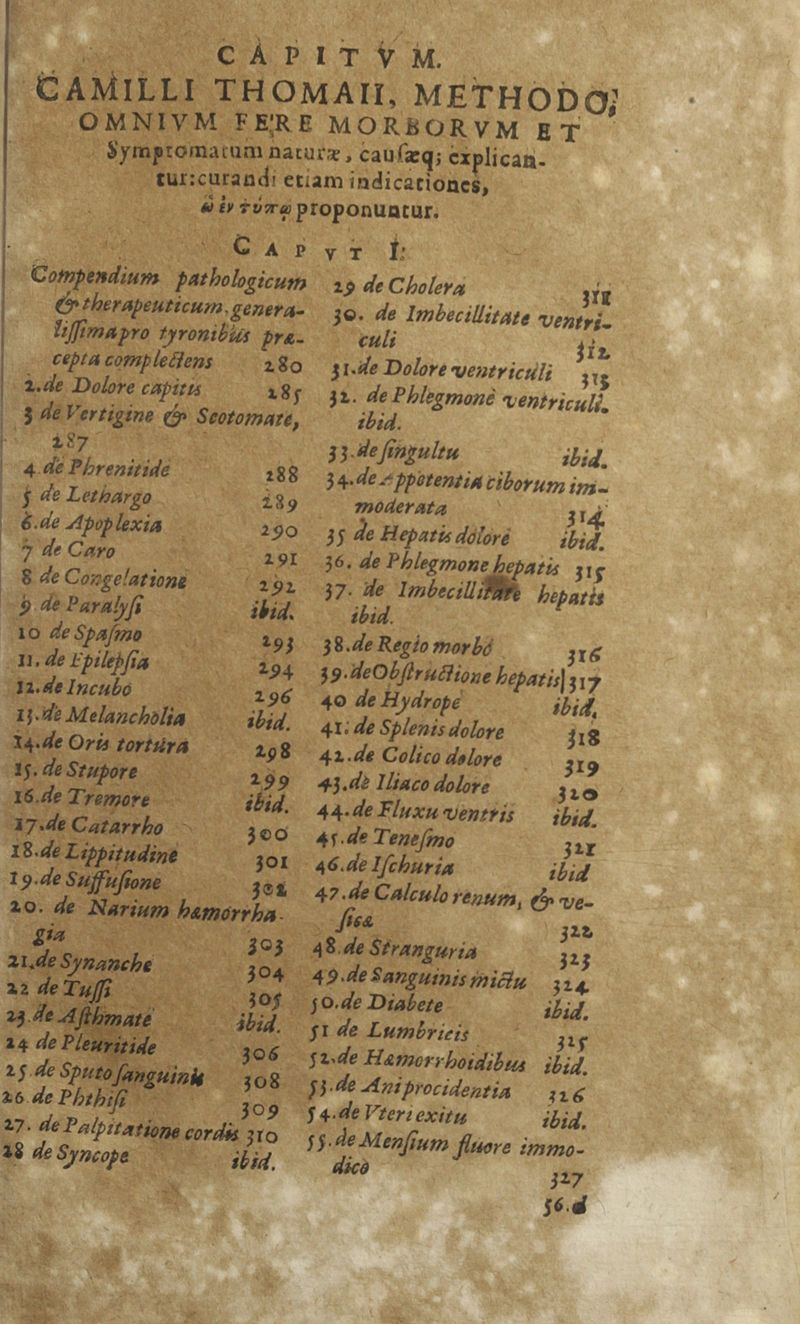 CAPITVM.
CAMILLI THOMAII, METHODO,
OMNIVM FERE MORBORVM ET
Symptomatum naturæ, cauſæq; explican-
tur: curandi etiam indicationes,
ὡ ἐν τύπῳ proponuntur.
CAPVT I:
Compendium pathologicum
& therapeuticum, genera-
liſſima pro tyronibus præ-
cepta complectens 280
2. de Dolore capitis 285
3 de Vertigine & Scotomate,
287
4 de Phrenitide 288
5 de Lethargo 289
6. de Apoplexia 290
7 de Caro 291
8 de Congelatione 292
9 de Paralyſi ibid.
10 de Spaſmo 293
11. de Epilepſia 294
12. de Incubo 296
13. de Melancholia ibid.
14. de Oris tortura 298
15. de Stupore 299
16. de Tremore ibid.
17. de Catarrho 300
18. de Lippitudine 301
19. de Suffuſione 302
20. de Narium hæmorrha-
gia 303
21. de Synanche 304
22 de Tuſſi 305
23. de Aſthmate ibid.
24 de Pleuritide 306
25. de Sputo ſanguinis 308
26 de Phthiſi 309
27. de Palpitatione cordis 310
28 de Syncope ibid.
29 de Cholera 311
30. de Imbecillitate ventri-
culi 312
31. de Dolore ventriculi 313
32. de Phlegmonè ventriculi.
ibid.
33. de ſingultu ibid.
34. de Appotentia ciborum im-
moderata 314
35 de Hepatis dolorè ibid.
36. de Phlegmone hepatis 315
37. de Imbecillitate hepatis
ibid.
38. de Regio morbó 316
39. de Obſtructione hepatis 317
40 de Hydrope ibid.
41. de Splenis dolore 318
42. de Colico dolore 319
43. dè Iliaco dolore 320
44. de Fluxu ventris ibid.
45. de Teneſmo 321
46. de Iſchuria ibid
47. de Calculo renum, & ve-
ſicæ 322
48. de Stranguria 323
49. de Sanguinis mictu 324
50. de Diabete ibid.
51 de Lumbricis 325
52. de Hæmorrhoidibus ibid.
53. de Ani procidentia 326
54. de Vteri exitu ibid.
55. de Menſium fluore immo-
dico 327
56. d